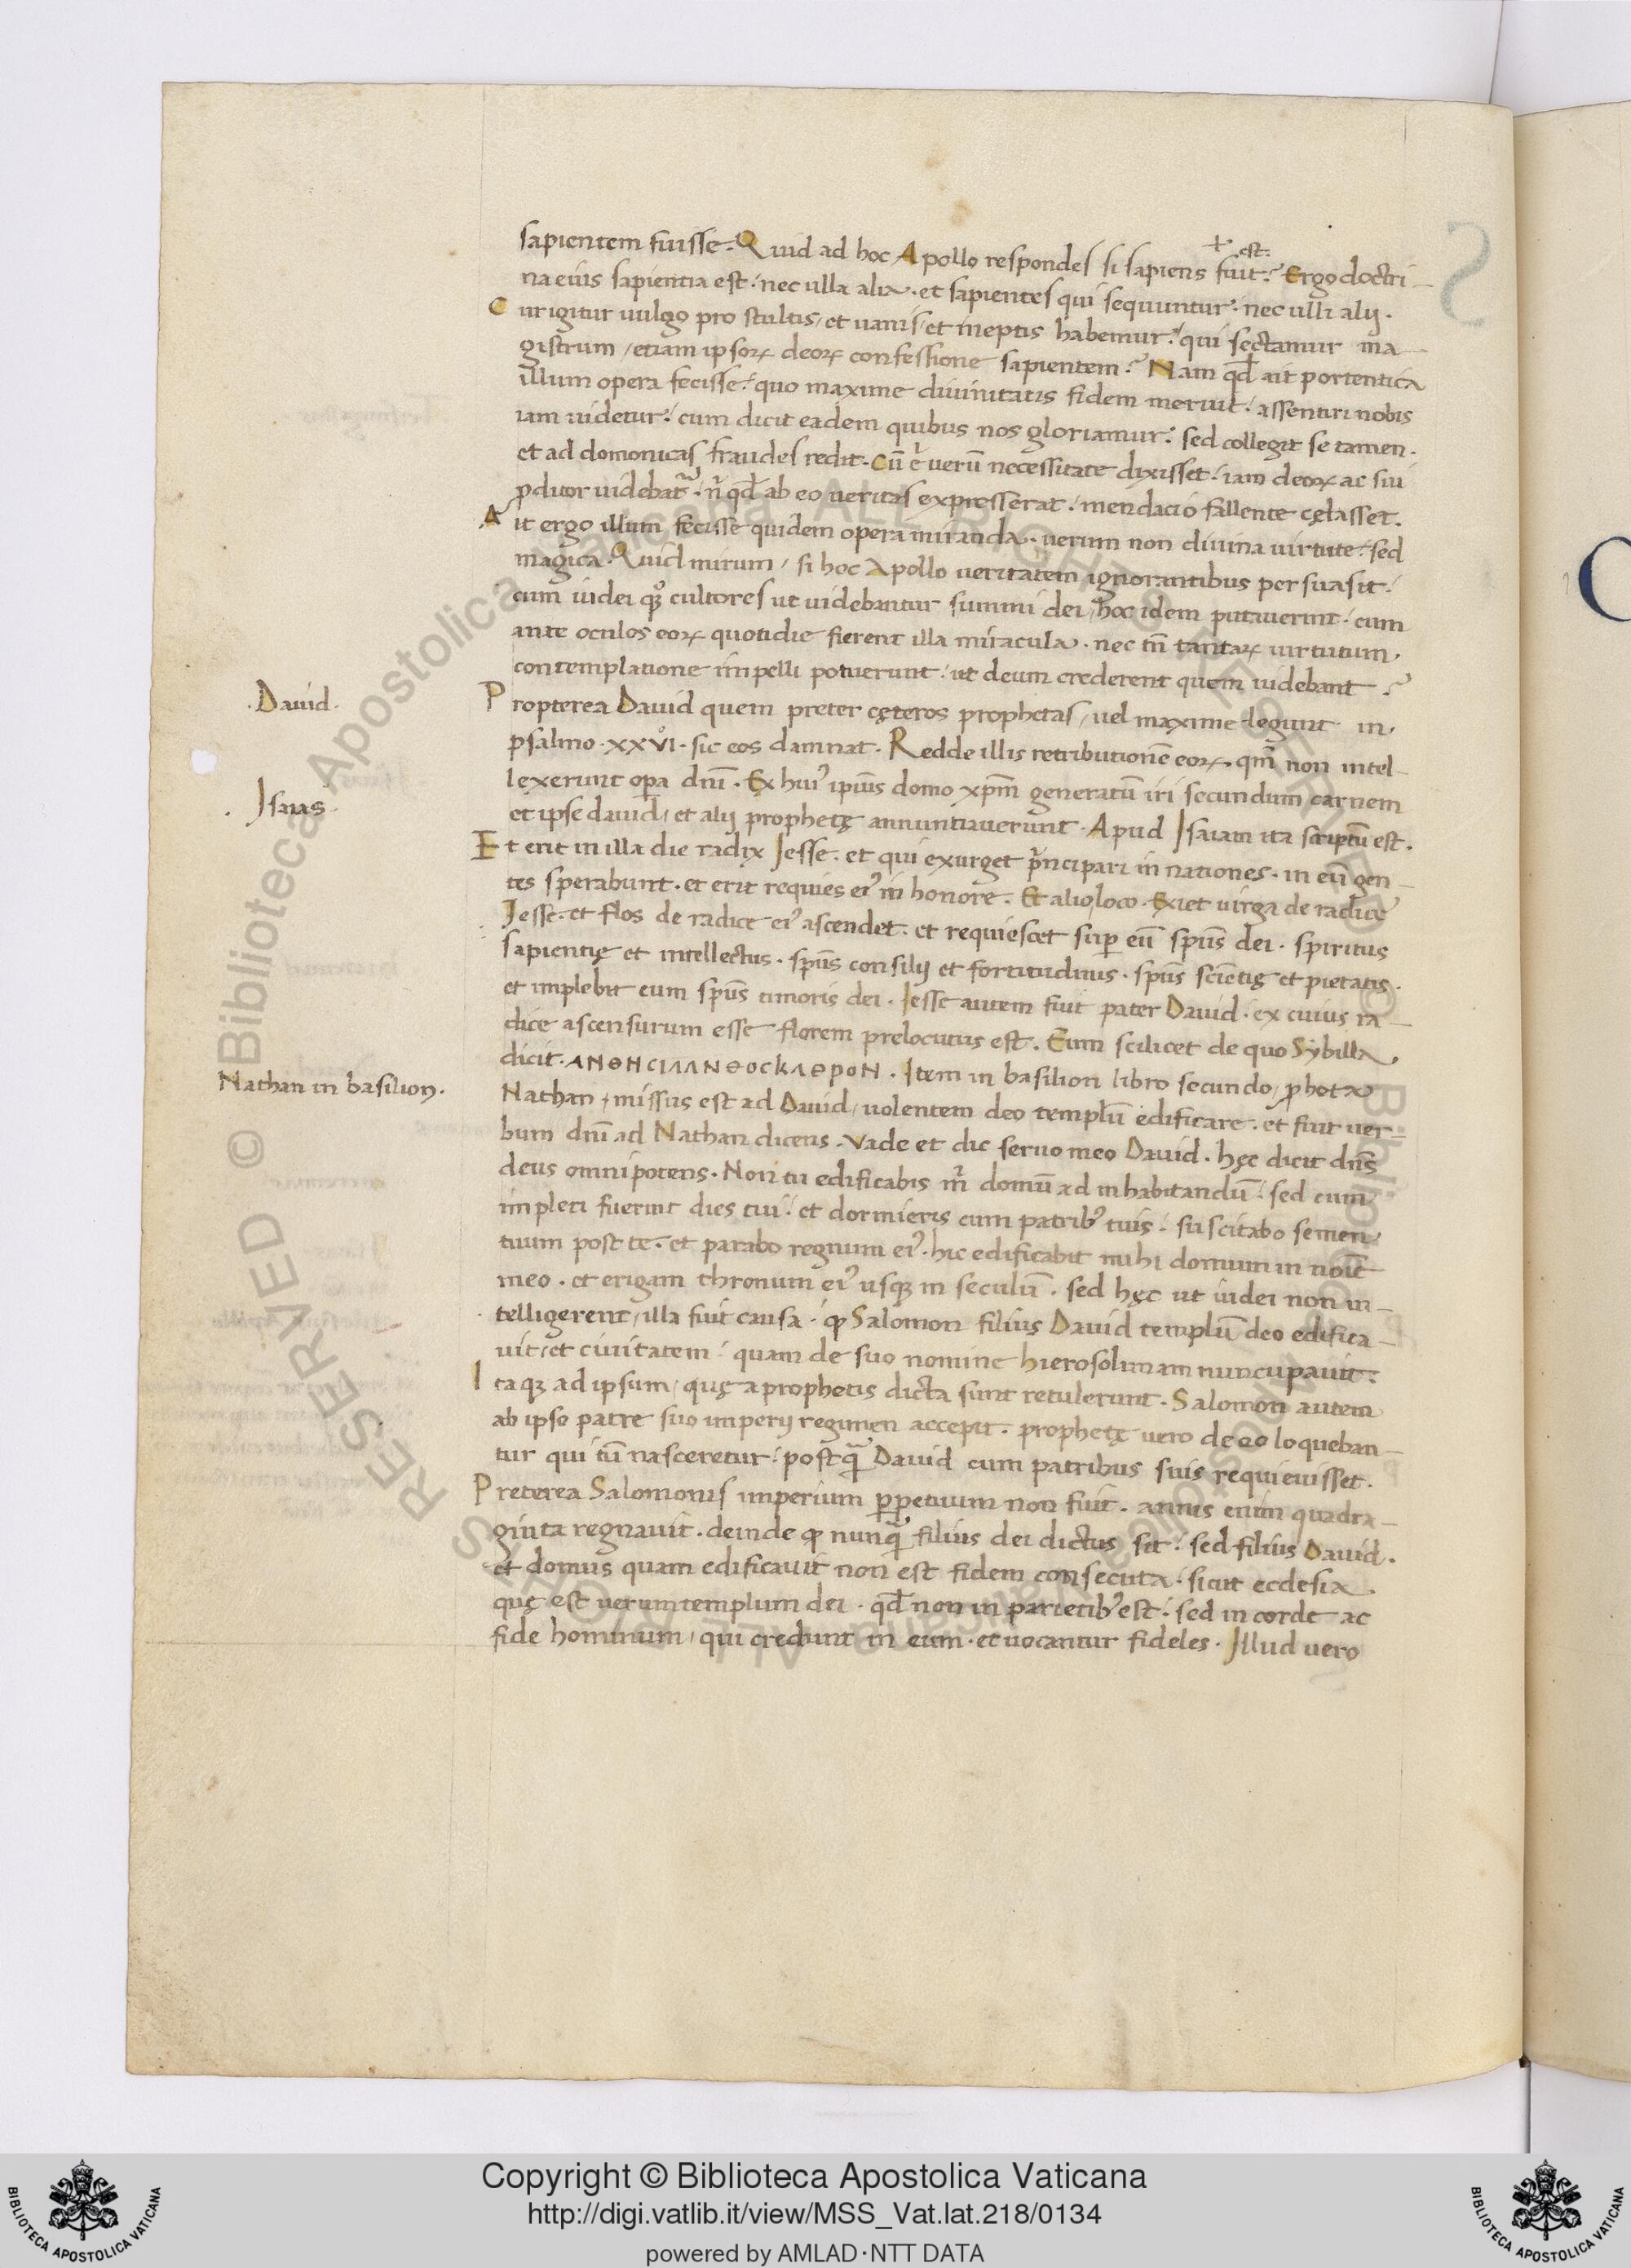 sapientem fuisse. Quid ad hoc Apollo respondes si sapiens fuit? Ergo doctri-
+ est:
na eius sapientia est. nec ulla alia. et sapientes qui sequuntur. nec ulli alij.
Cur igitur uulgo pro stultis, et uanis, et ineptis habemur? qui sectamur ma-
gistrum, etiam ipsoꝝ deoꝝ confessione sapientem? Nam qđ ait portentica
illum opera fecisse: quo maxime diuinitatis fidem meruit: assentiri nobis
iam uidetur: cum dicit eadem quibus nos gloriamur. sed collegit se tamen.
et ad domonicas fraudes redit. Cū .n. uerū necessitate dixisset: iam deoꝝ ac sui
ꝓditor uidebat᷑. nͥ qđ ab eo ueritas expresserat: mendacio fallente cęlasset.
Ait ergo illum fecisse quidem opera miranda. uerum non diuina uirtute: sed
magica. Quid mirum, si hoc Apollo ueritatem ignorantibus persuasit:
cum iudei qͦꝫ cultores ut uidebantur summi dei, hoc idem putauerint: cum
ante oculos eoꝝ quotidie fierent illa miracula. nec tn̄ tantaꝝ uirtutum
contemplatione impelli potuerunt: ut deum crederent quem uidebant?
Propterea Dauid quem preter cęteros prophetas, uel maxime legunt in
psalmo .xxvͦı. sic eos damnat. Redde illis retributionē eoꝝ. qm̄ non intel-
lexerunt opa dn̄i. Ex huı᾽ ipius domo xpm̄ generatū iri secundum carnem
et ipse dauid, et alij prophetę annuntiauerunt. Apud Isaiam ita scriptū est.
Et erit in illa die radix Jesse. et qui exurget pͥncipari in nationes. in eū gen-
tes sperabunt. et erit requies ei᾽ in honore. Et alio loco. Exiet uirga de radice
Jesse. et flos de radice ei᾽ ascendet. et requiescet suꝑ eū spūs dei. spiritus
sapientię et intellectus. spūs consilij et fortitudinis. spūs sciētię et pietatis.
et implebit eum spūs timoris dei. Jesse autem fuit pater Dauid. ex cuius ra-
dice ascensurum esse florem prelocutus est. Eum scilicet de quo Sybilla
dicit. ΑΝΘΗCΙΛΛΝΘΟCΚΛΘΡΟΝ. Item in basilion libro secundo, ꝓheta
Nathan, missus est ad Dauid, uolentem deo templū edificare. et fuit uer-
bum dn̄i ad Nathan dicens. Vade et dic seruo meo Dauid. hęc dicit dn̄s
deus omnipotens. Non tu edificabis mͥ domū ad inhabitandū: sed cum
impleti fuerint dies tui: et dormieris cum patrib᾽ tuis: suscitabo semen
tuum post te. et parabo regnum ei᾽. hic edificabit mihi domum in noīe
meo. et erigam thronum ei᾽ usqꝫ in seculū. sed hęc ut iudei non in-
telligerent, illa fuit causa. ꝙ Salomon filius Dauid templū deo edifica-
uit, et ciuitatem: quam de suo nomine hierosolimam nuncupauit.
Itaqꝫ ad ipsum, quę a prophetis dicta sunt retulerunt. Salomon autem
ab ipso patre suo imperij regimen accepit. prophetę uero de eo loqueban-
tur qui tū nasceretur: postqͣ Dauid cum patribus suis requieuisset.
Preterea Salomonis imperium ꝑpetuum non fuit. annis enim quadra-
ginta regnauit. deinde ꝙ nunqͣ filius dei dictus sit: sed filius Dauid.
et domus quam edificauit non est fidem consecuta. sicut ecclesia
quę est uerum templum dei. qđ non in parietib᾽ est: sed in corde ac
fide hominum, qui credunt in eum. et uocantur fideles. Illud uero
.Dauid.
.Isaias.
Nathan in basilion.
Copyright © Biblioteca Apostolica Vaticana
http://digi.vatlib.it/view/MSS_Vat.lat.218/0134
powered by AMLAD·NTT DATA
BIBLIOTECA APOSTOLICA VATICANA
BIBLIOTECA APOSTOLICA VATICANA